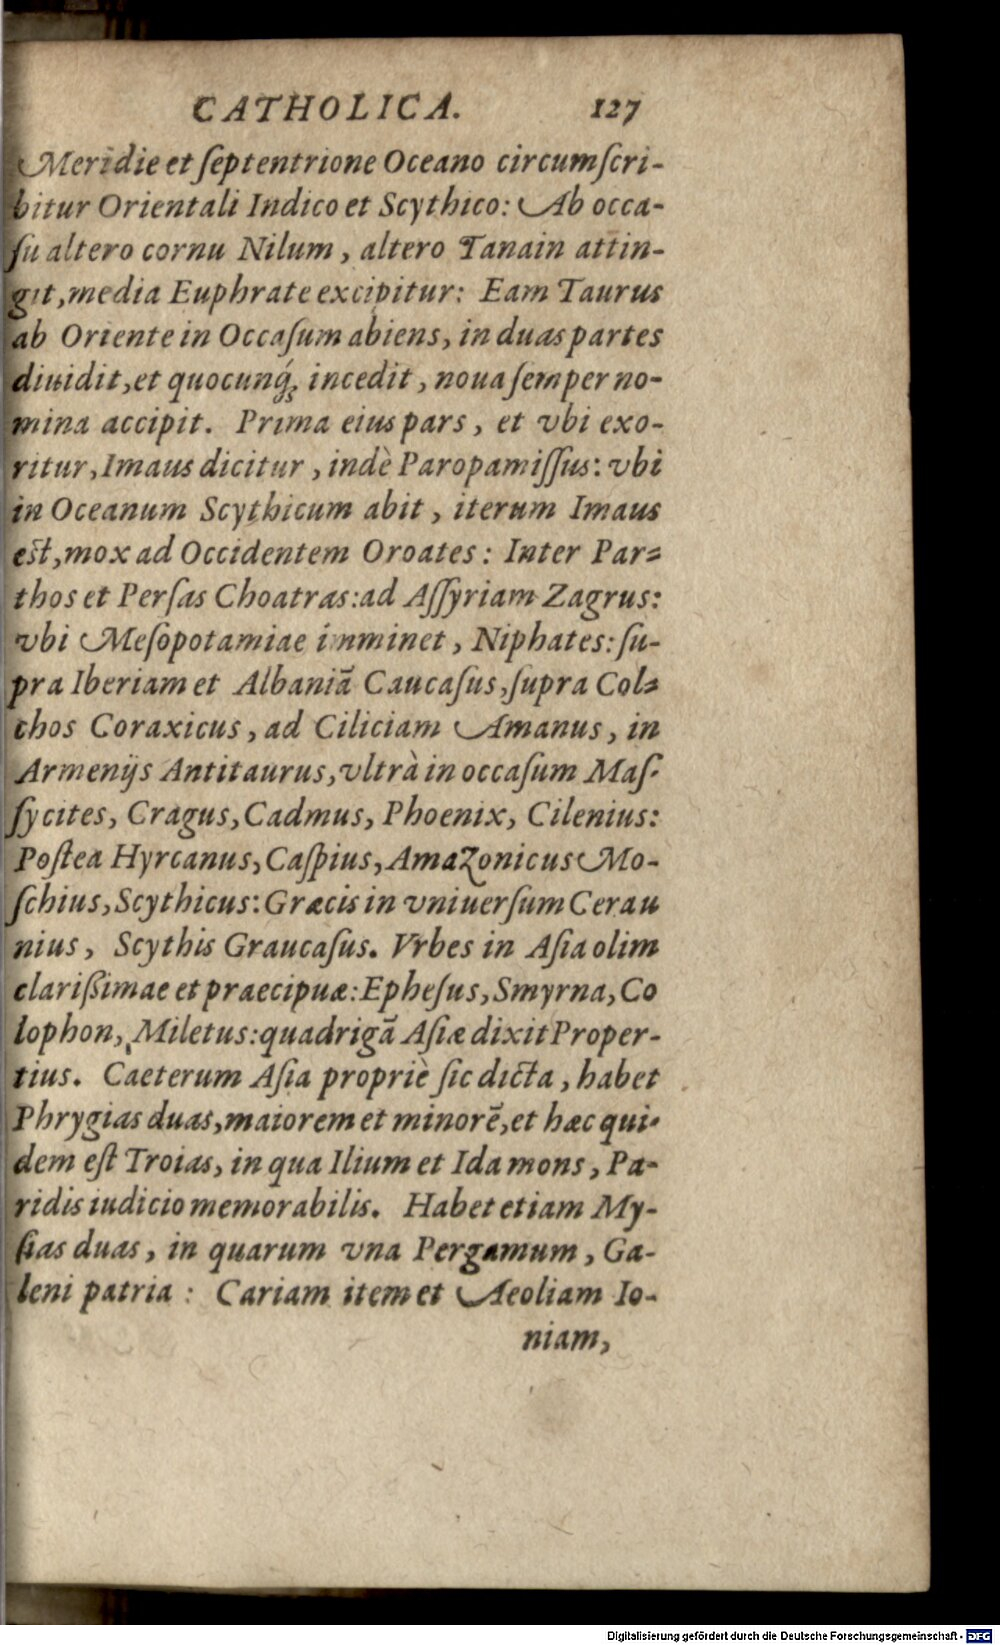 CATHOLICA. 127
Meridie et ſeptentrione Oceano circumſcri-
bitur Orientali Indico et Scythico: Ab occa-
ſu altero cornu Nilum, altero Tanain attin-
git, media Euphrate excipitur: Eam Taurus
ab Oriente in Occaſum abiens, in duas partes
diuidit, et quocunq́ꝫ incedit, noua ſemper no-
mina accipit. Prima eius pars, et vbi exo-
ritur, Imaus dicitur, indè Paropamiſſus: vbi
in Oceanum Scythicum abit, iterum Imaus
eſt, mox ad Occidentem Oroates: Inter Par-
thos et Perſas Choatras: ad Aſſyriam Zagrus:
vbi Meſopotamiae imminet, Niphates: ſu-
pra Iberiam et Albaniã Caucaſus, ſupra Col-
chos Coraxicus, ad Ciliciam Amanus, in
Armenijs Antitaurus, vltrà in occaſum Maſ-
ſycites, Cragus, Cadmus, Phoenix, Cilenius:
Poſtea Hyrcanus, Caſpius, Amazonicus Mo-
ſchius, Scythicus: Græcis in vniuerſum Cerau
nius, Scythis Graucaſus. Vrbes in Aſia olim
clarißimae et praecipuæ: Epheſus, Smyrna, Co
lophon, Miletus: quadrigã Aſiæ dixit Proper-
tius. Caeterum Aſia propriè ſic dicta, habet
Phrygias duas, maiorem et minorẽ, et hæc qui-
dem eſt Troias, in qua Ilium et Ida mons, Pa-
ridis iudicio memorabilis. Habet etiam My-
ſias duas, in quarum vna Pergamum, Ga-
leni patria: Cariam item et Aeoliam Io-
niam,
Digitalisierung gefördert durch die Deutsche Forschungsgemeinschaft - DFG